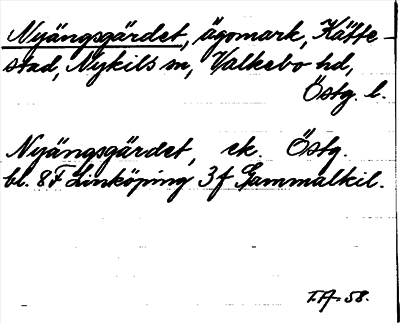 Nyängsgärdet, ägomark, Kätte-
stad, Nykils sn, Valkebo hd,
Östg. l.
Nyängsgärdet, ek. Östg.
bl. 8F Linköping 3f Gammalkil.
T.A. 58.